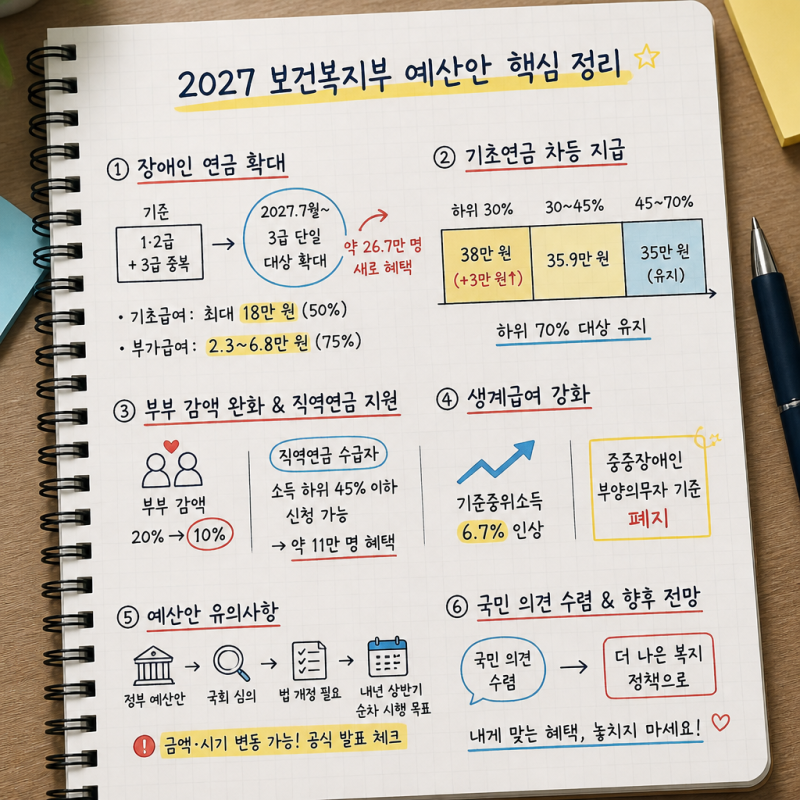 2027 보건복지부 예산안 핵심 정리
① 장애인 연금 확대
기준
1·2급
+ 3급 중복
2027.7월~
3급 단일
대상 확대
약 26.7만 명
새로 혜택
• 기초급여: 최대 18만 원 (50%)
• 부가급여: 2.3~6.8만 원 (75%)
② 기초연금 차등 지급
하위 30%
30~45%
45~70%
38만 원
(+3만 원↑)
35.9만 원
35만 원
(유지)
하위 70% 대상 유지
③ 부부 감액 완화 & 직역연금 지원
부부 감액
20% → 10%
직역연금 수급자
소득 하위 45% 이하
신청 가능
→ 약 11만 명 혜택
④ 생계급여 강화
기준중위소득
6.7% 인상
중중장애인
부양의무자 기준
폐지
⑤ 예산안 유의사항
정부 예산안
국회 심의
법 개정 필요
내년 상반기
순차 시행 목표
! 금액·시기 변동 가능! 공식 발표 체크
⑥ 국민 의견 수렴 & 향후 전망
국민 의견
수렴
더 나은 복지
정책으로
내게 맞는 혜택, 놓치지 마세요!